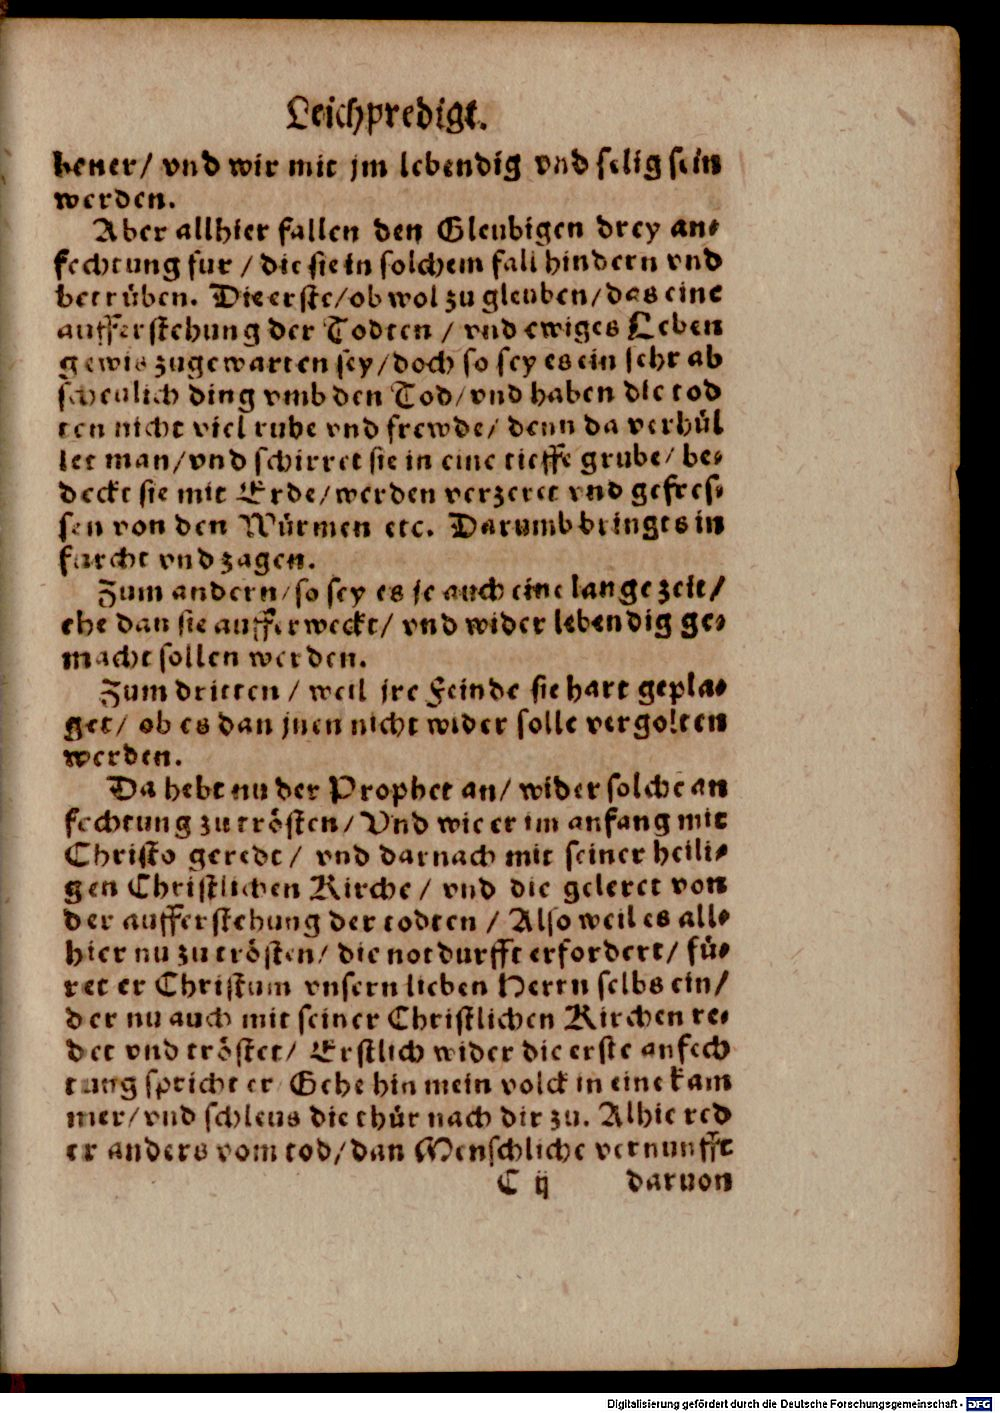 Leichpredigt.
bener/ vnd wir mit jm lebendig vnd selig sein
werden.
Aber allhier fallen den Gleubigen drey an⸗
fechtung fur / die sie in solchem fall hindern vnd
betrüben. Die erste/ ob wol zu gleuben/ das eine
aufferstehung der Todten / vnd ewiges Leben
gewis zugewarten sey/ doch so sey es ein sehr ab
scheulich ding vmb den Tod/ vnd haben die tod
ten nicht viel ruhe vnd frewde/ denn da verhül
let man/ vnd schirret sie in eine tieffe grube/ be⸗
deckt sie mit Erde/ werden verzeret vnd gefres⸗
sen von den Würmen etc. Darumb bringts in
furcht vnd zagen.
Zum andern/ so sey es je auch eine lange zeit/
ehe dan sie aufferweckt/ vnd wider lebendig ge⸗
macht sollen werden.
Zum dritten / weil jre Feinde sie hart gepla⸗
get/ ob es dan jnen nicht wider solle vergolten
werden.
Da hebt nu der Prophet an/ wider solche an
fechtung zu trösten/ Vnd wie er im anfang mit
Christo geredt/ vnd darnach mit seiner heili⸗
gen Christlichen Kirche/ vnd die geleret von
der aufferstehung der todten / Also weil es all⸗
hier nu zu trösten/ die notdurfft erfordert/ fü⸗
ret er Christum vnsern lieben Herrn selbs ein/
der nu auch mit seiner Christlichen Kirchen re⸗
det vnd tröstet/ Erstlich wider die erste anfech
tung spricht er Gehe hin mein volck in eine kam
mer/ vnd schleus die thür nach dir zu. Alhie red
er anders vom tod/ dan Menschliche vernunfft
C ij daruon
Digitalisierung gefördert durch die Deutsche Forschungsgemeinschaft - DFG